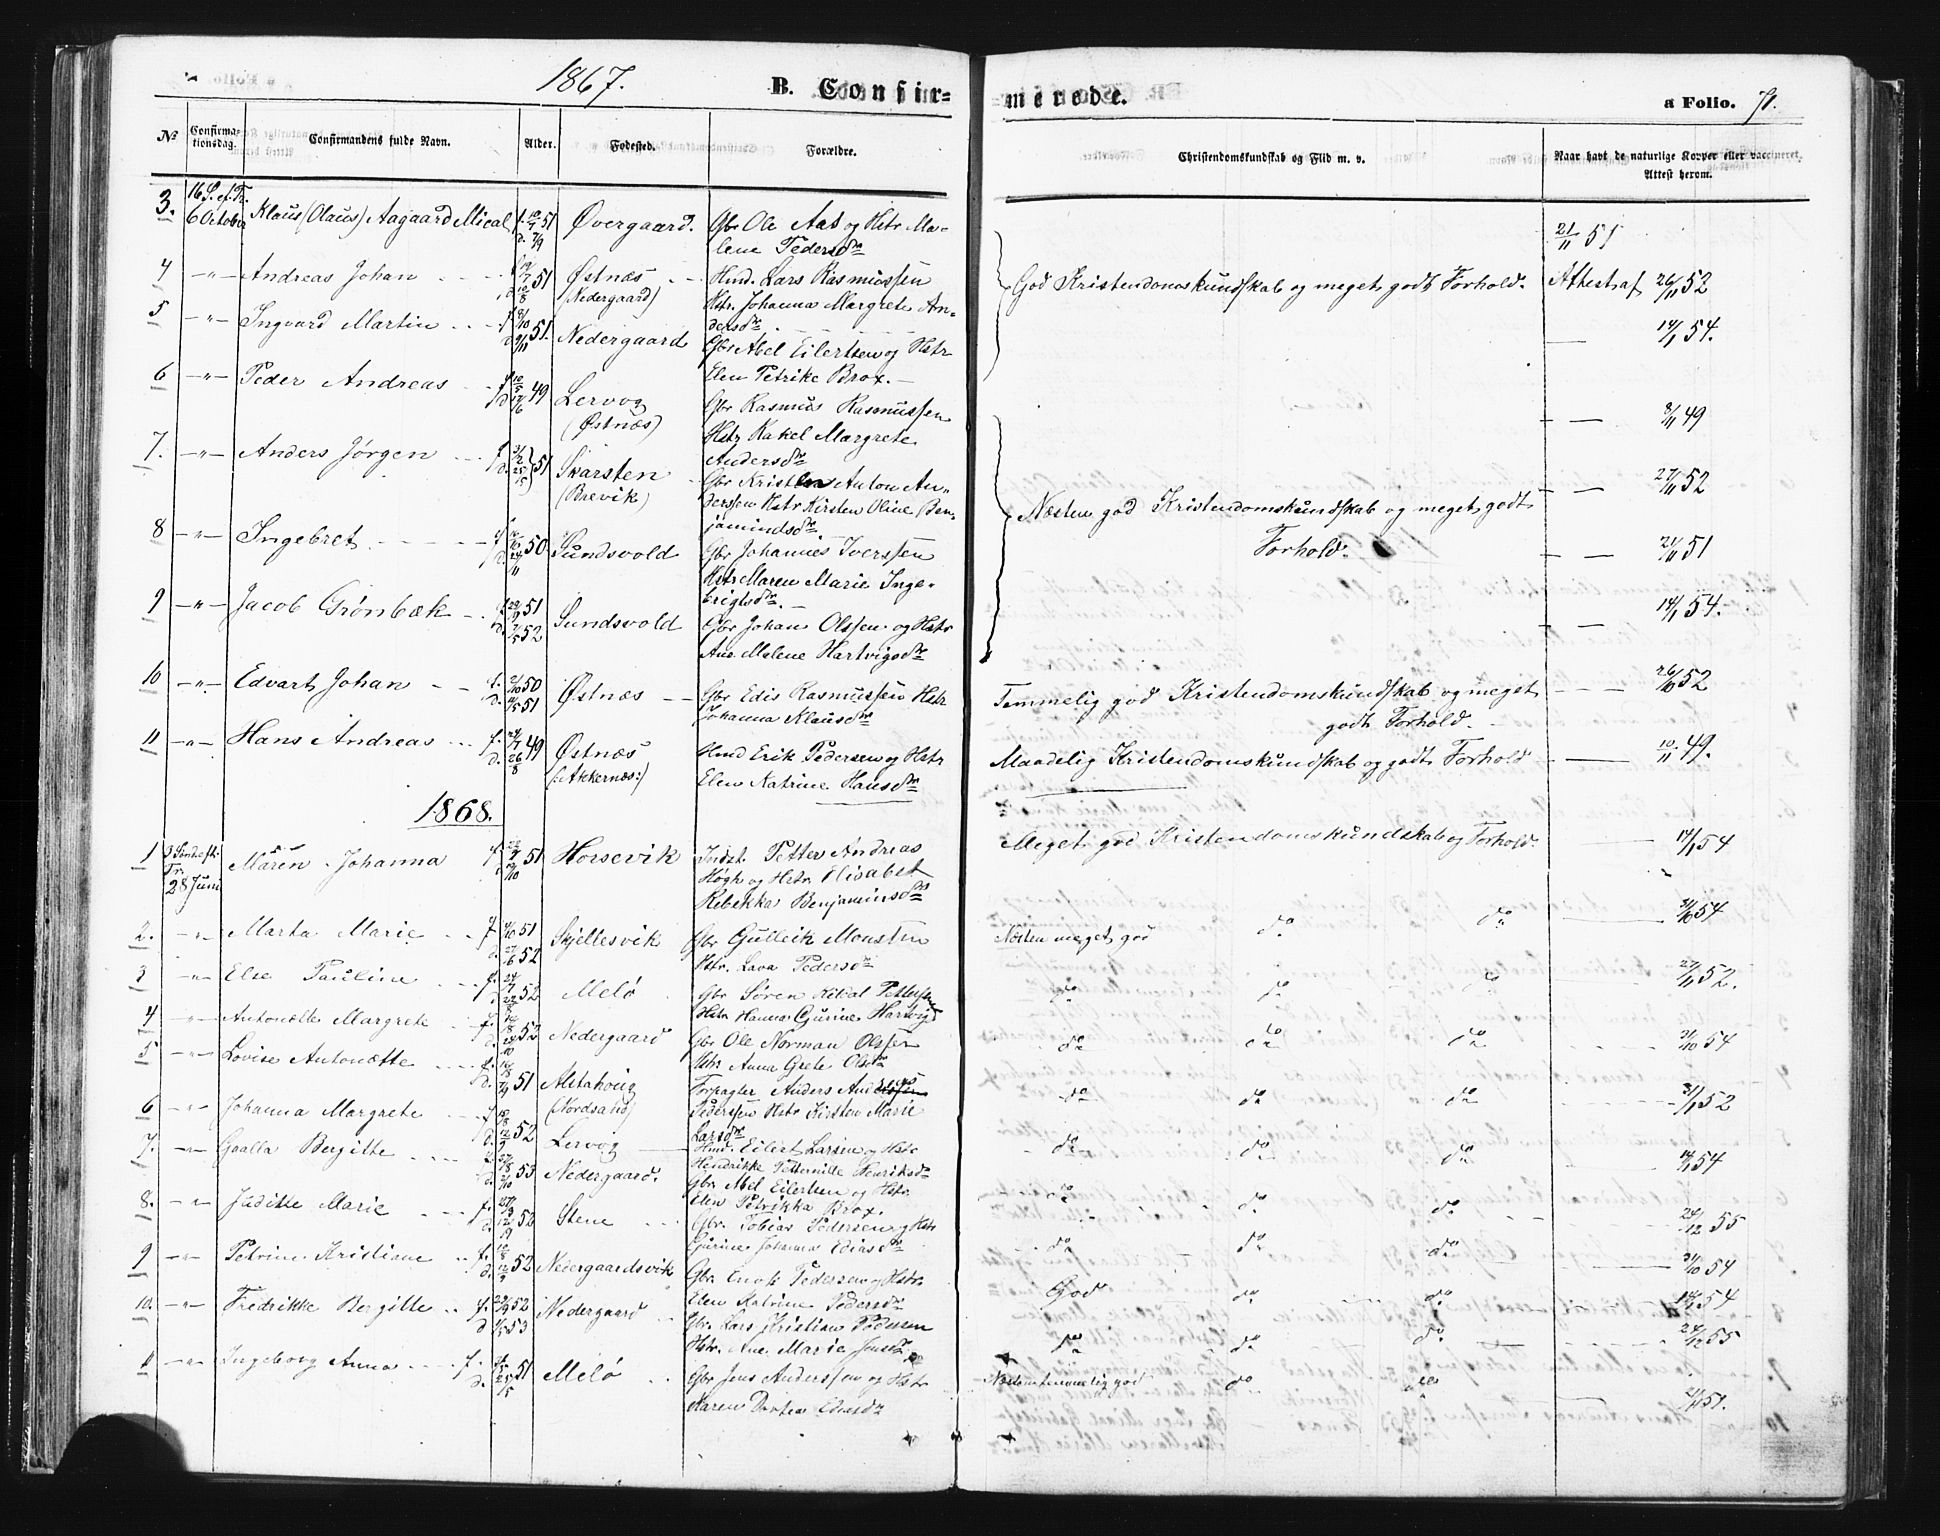 1867.
B. Confir=
merede.
a Folio. 71.
No
Confirma-
tionsdag.
Confirmandens fulde Navn.
Alder.
Fødested.
Forældre.
Christendomskundskab og Flid m. v.
Naar havt de naturlige Kopper eller vaccineret,
Attest herom.
3. 16 S. ef. Tr.
6 October Klaus (Olaus) Aagaard Mical f. 10/7 51 Øvergaard. Gbr Ole Aas og Hstr Ma-
d. 7/9 lene Pedersdr 21/11 51
4 -"- Andreas Johan 51 Østnæs Hmd. Lars Rasmussen
(Nedergaard) Hstr. Johanna Margrete An-
dersdr. God Kristendomskundskab og meget godt Forhold. Attest af 26/11 52
5 -"- Ingvard Martin 51. Nedergaard Gbr Abel Eilertsen og Hstr
Elen Petrike Brox. 14/1 54.
6 -"- Peder Andreas 49 Lervog Gbr Rasmus Rasmussen
(Østnæs) Hstr Rakel Margrete
Andersdr 8/11 49
7. -"- Anders Jørgen 51 Skarsten Gbr Kristen Anton An-
(Brevik) derssen Hstr Kirsten Oline Ben-
jamindsdr. 27/11 52
Næsten god Kristendomskundskab og meget godt
Forhold.
8 -"- Ingebret 50. Sundsvold Gbr Johannes Iverssen
Hstr Maren Marie Inge-
brigtsdr. 21/11 51
9 -"- Jacob Grønbæk 51 52 Sundsvold Gbr Johan Olssen og Hstr
Ane Malene Hartvigsdr 14/1 54.
10 -"- Edvart Johan f. 50 d. 51 Østnæs Gbr Edis Rasmussen Hstr
Johanna Klausdr Temmelig god Kristendomskundskab og meget
godt Forhold. 26/10 52
11 -"- Hans Andreas f. 49 d. 26/8 Østnæs Hmd Erik Pedersen og Hstr
(:Akkernæs:) Elen Katrine Hansdr Maadelig Kristendomskundskab og godt Forhold 10/11 49.
1868.
1 3 Sønd. eft.
Tr.
28 Juni Maren Johanna 51 Horsevik Indst. Petter Andreas
Høgh og Hstr Elisabet
Rebekka Benjaminsdr Meget god Kristendomskundskab og Forhold. 14/1 54
2. -"- Marta Marie 51 52 Skjellesvik Gbr Gulleik Monssen
Hstr. Lava Pedersdr Næsten meget god do do 31/10 54
3 -"- Else Pauline 52 Melø Gbr Søren Kildal Pettersen
Hstr Hanna Gurine Hartvigs do do do 27/11 52.
4 -"- Antonætte Margrete 52 Nedergaard Gbr Ole Norman Olssen
Hstr Anna Grete Olsdr do do do 31/10 54
5 -"- Lovise Antonætte 51 Alstahoug Forpagter Anders
(Nordsand) Pederssen Hstr Kirsten Marie
Larsdr do do do 31/1 52
6 -"- Johanna Margrete 52 Lervog Hmd. Eilert Larsen og Hstr
Hendrikke Petternille Henriksdr do do do 14/1 54
7. -"- Gaalla Bergitte 53 Nedergaard. Gbr Abel Eilertsen og Hstr.
Elen Petrikka Brox. do do do 24/12 55
8. -"- Juditte Marie 52 Stene Gbr. Tobias Pedersen og Hstr
Gurine Johanna Ediasdr do do do 31/10 54
9 -"- Petrine Kristiane 52 Neiergaardsvik Gbr. Enok Pedersen og Hstr.
Elen Katrine Pedersdr God do do 14/1 54
10. -"- Fredrikke Bergitte 52 53 Nedergaard Gbr. Lars Kristian Pedersen
Hstr. Ane Marie Jensdr do do do 24/12 55
11 -"- Ingeborg Anna 51 Melø Gbr Jens Anderssen og Hstr
Karen Dortea Ediasdr Næsten temmelig god do do 21/11 51.